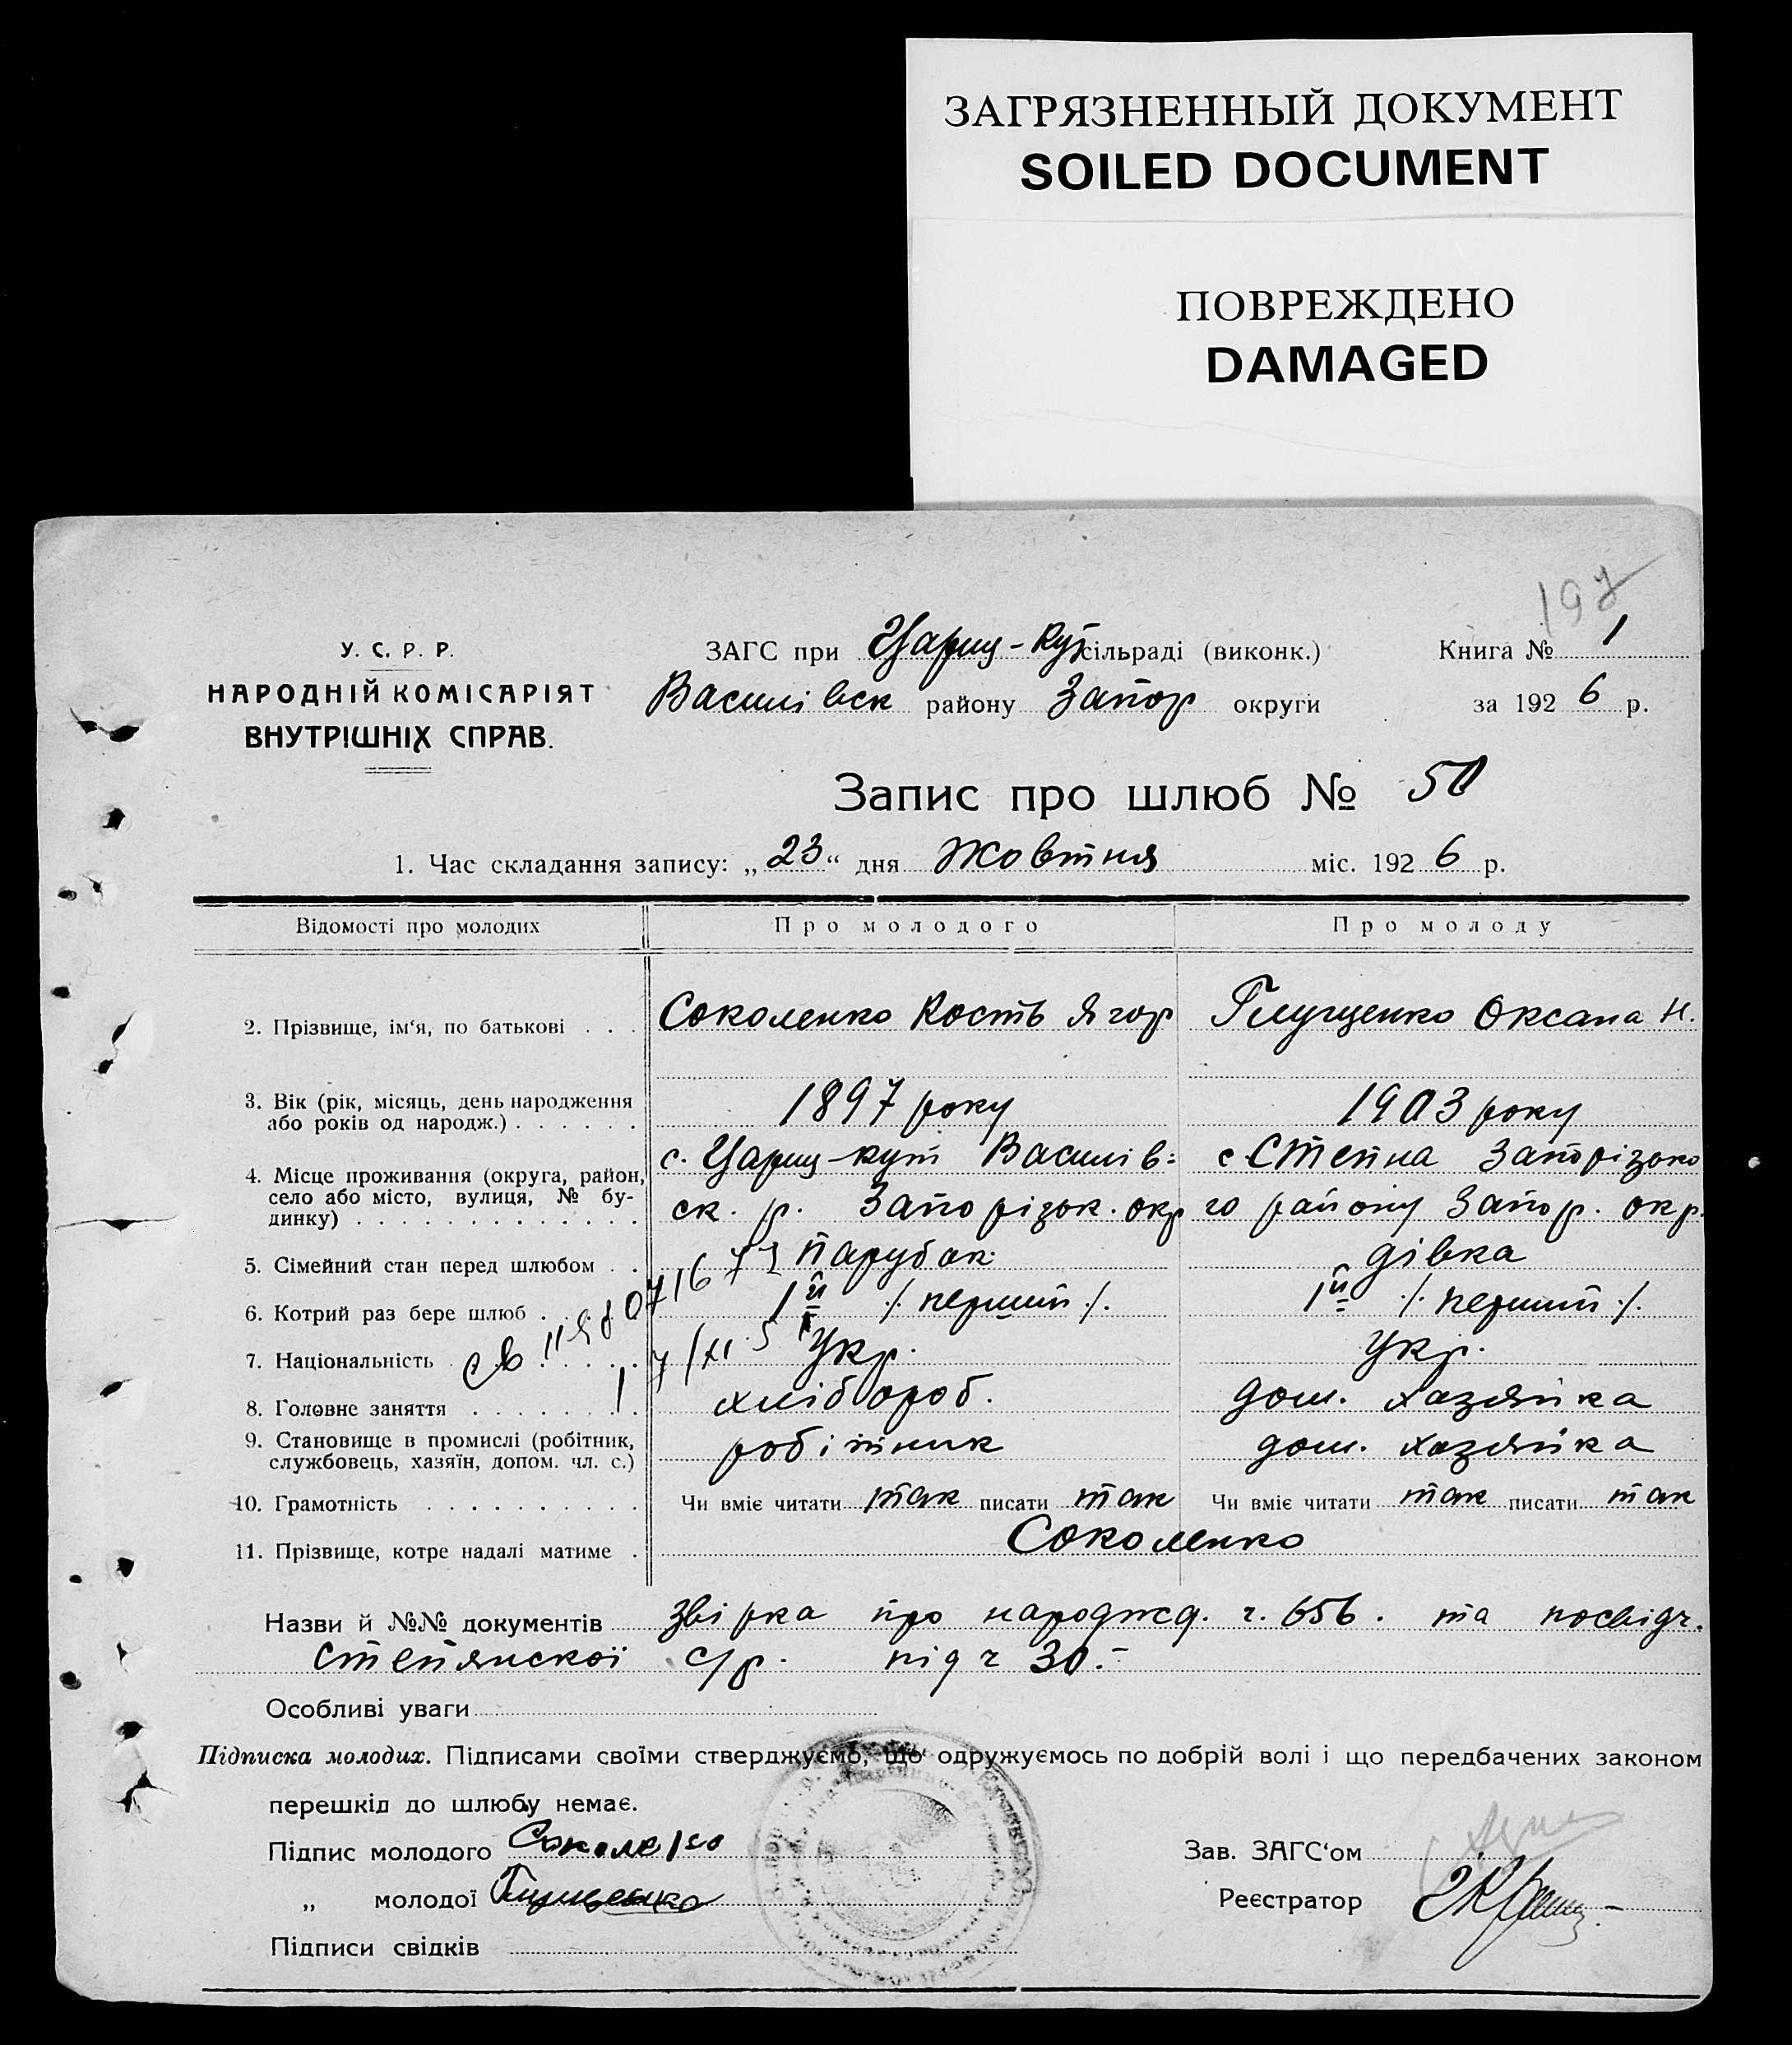 ЗАГРЯЗНЕННЫЙ ДОКУМЕНТ
SOILED DOCUMENT
ПОВРЕЖДЕНО
DAMAGED
197
У. С. Р. Р.
НАРОДНІЙ КОМІСАРІЯТ
ВНУТРІШНІХ СПРАВ.
ЗАГС при Цариц-Кут сільраді (виконк.) Книга № 1
Василівск району Запор округи за 1926 р.
Запис про шлюб № 50
1. Час складання запису: „23“ дня Жовтня міс. 1926 р.
Відомості про молодих Про молодого Про молоду
2. Прізвище, ім‘я, по батькові . . . Соколенко Кость Ягор Глущенко Оксана Н.
3. Вік (рік, місяць, день народження
або років од народж.) . . . . . . 1897 року 1903 року
4. Місце проживання (округа, район, с. Цариц-кут Василів= с. Степна Запорізько
село або місто, вулиця, № бу- ск. р. Запорізьк. окр го району Запор. окр.
динку) . . . . . . . . . . . . .
5. Сімейний стан перед шлюбом . . парубок дівка
6. Котрий раз бере шлюб . . . . . 1й ./. перший ./. 1й ./. перший ./.
7. Національність . . . . . Укр. Укр.
8. Головне заняття . . . . . . . . хлібороб. дом. хазяйка
9. Становище в промислі (робітник,
службовець, хазяїн, допом. чл. с.) робітник дом. хазяйка
10. Грамотність . . . . . . . . . . Чи вміє читати так писати так Чи вміє читати так писати так
11. Прізвище, котре надалі матиме . Соколенко
Назви й №№ документів звірка про народжд. ч. 656. та посвідч.
Степянскої с/р. під ч 30.-
Особливі уваги
Підписка молодих. Підписами своїми стверджуємо, що одружуємось по добрій волі і що передбачених законом
перешкід до шлюбу немає.
Підпис молодого Соколенко Зав. ЗАГС‘ом
„ молодої Глущенко Реєстратор
Підписи свідків